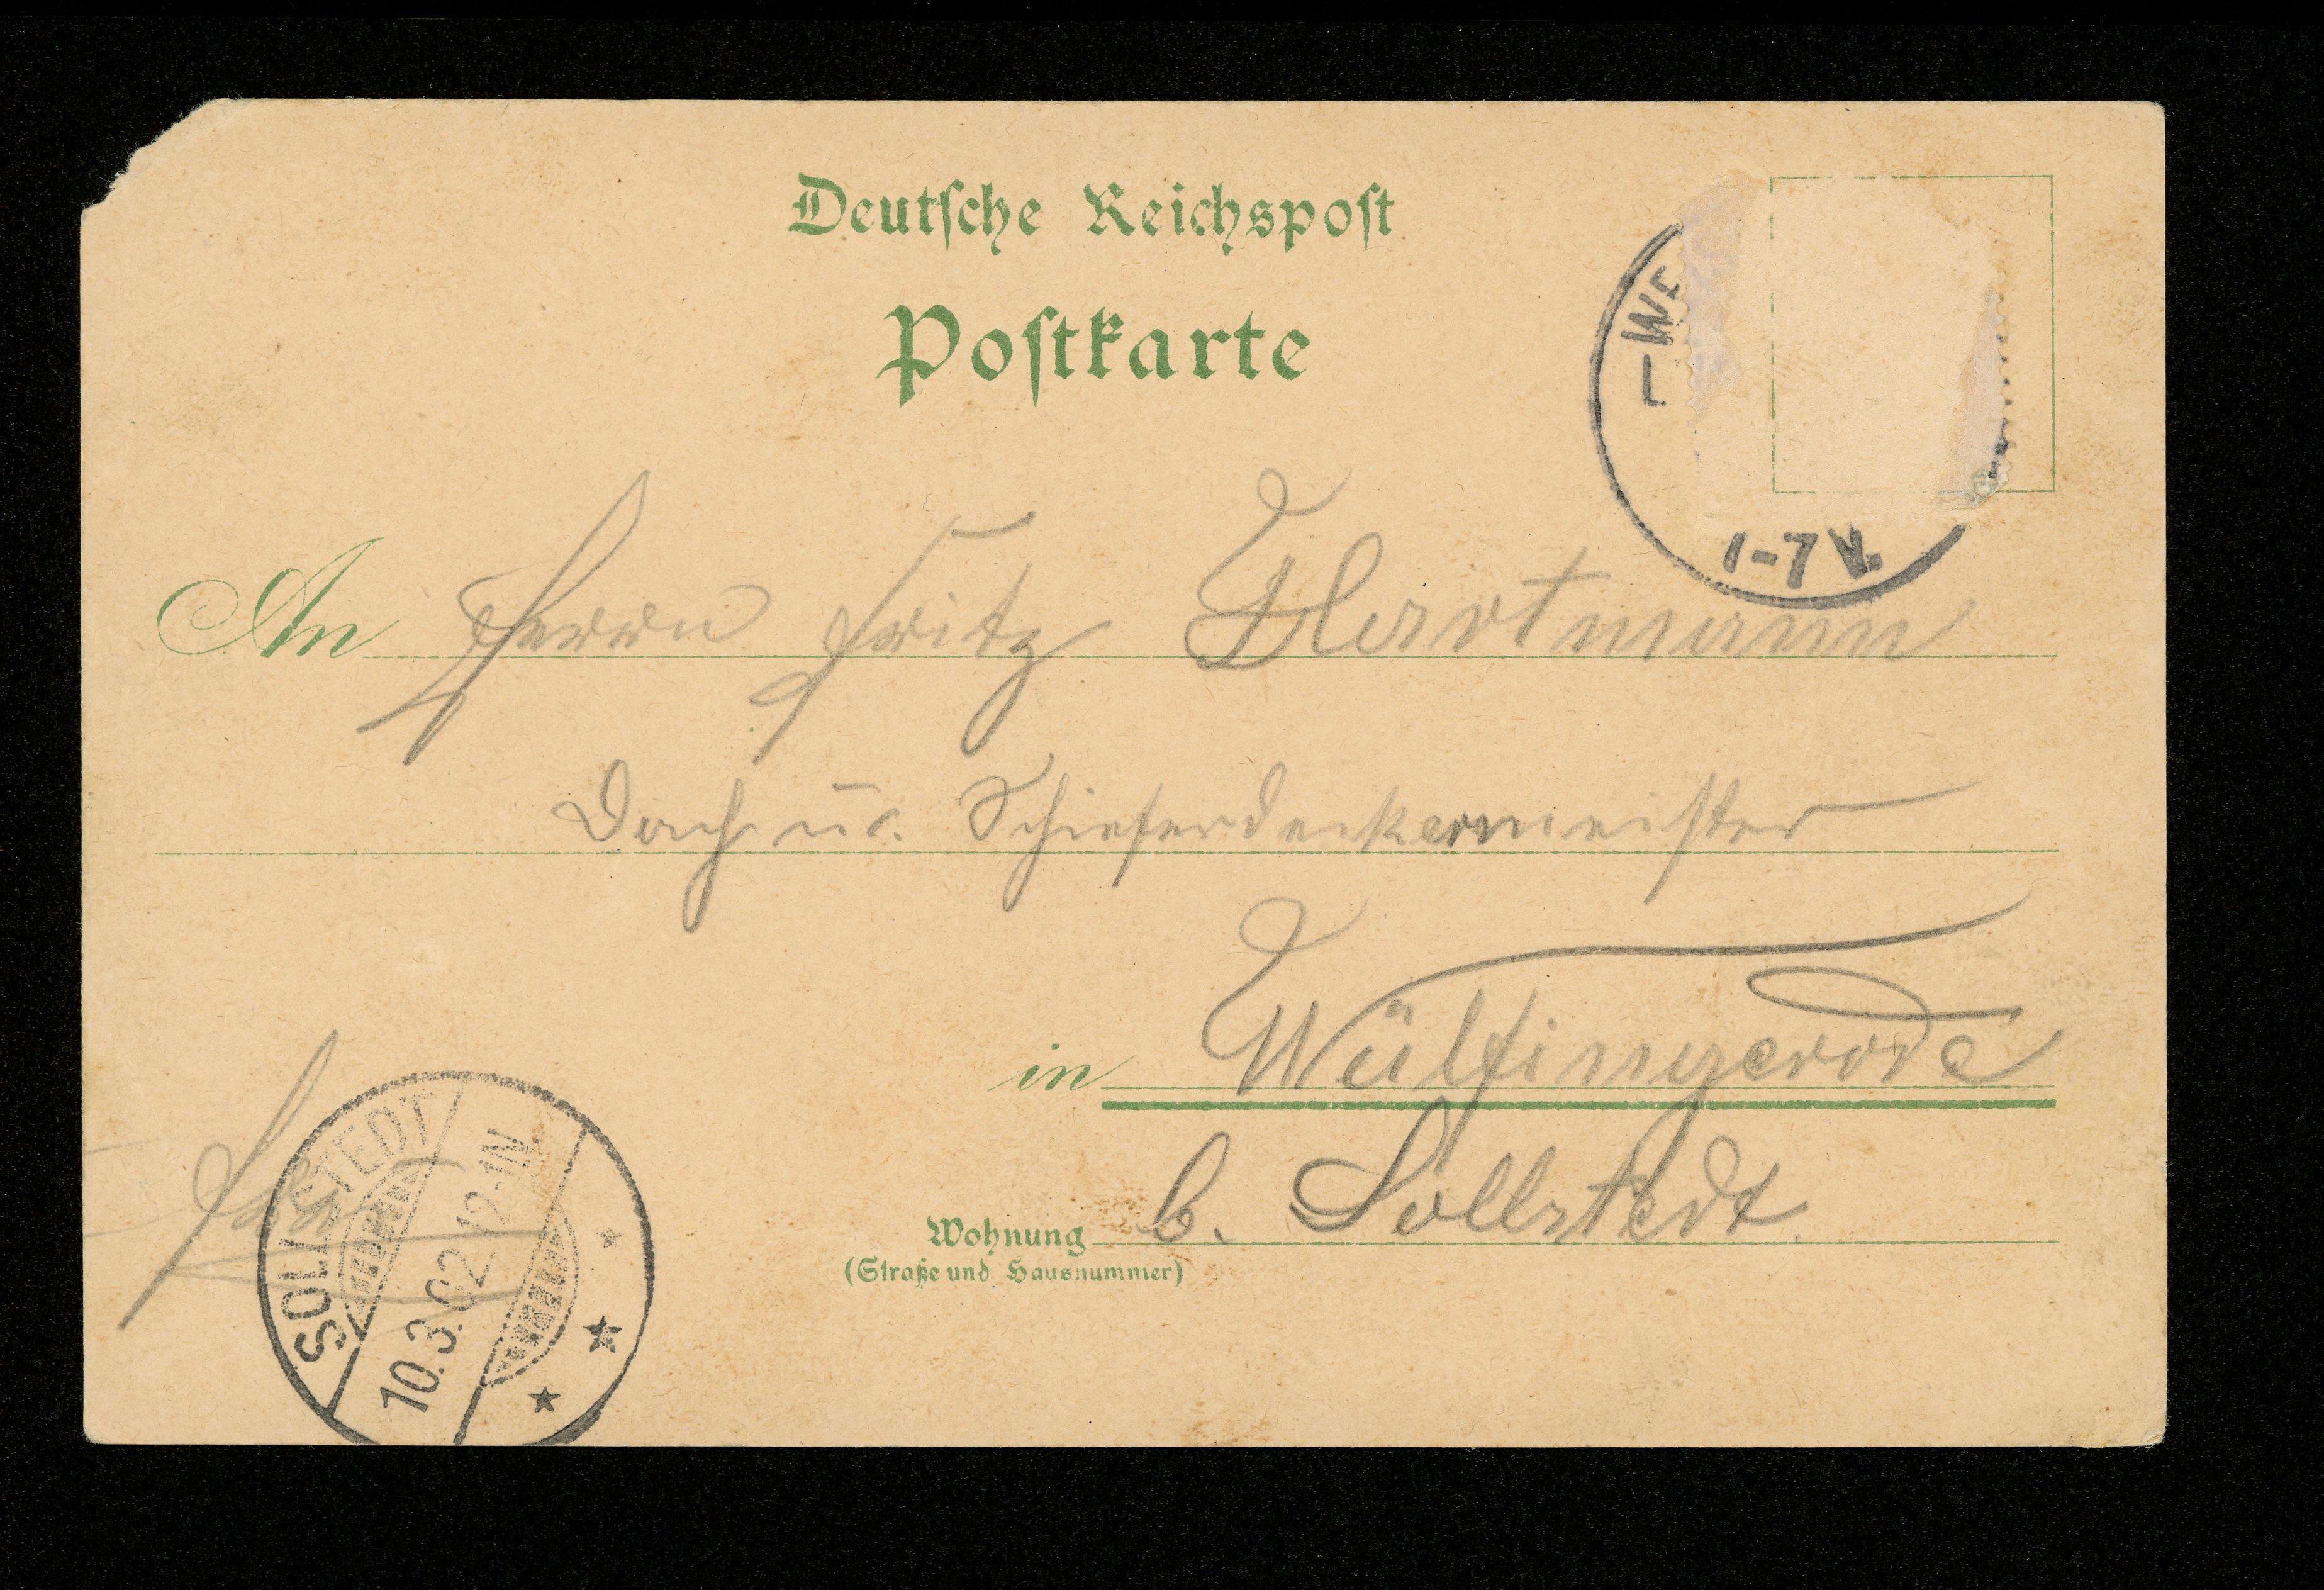 Deutsche Reichspost
Postkarte
WE
1-7 V.
An Herrn Fritz Hartmann
Dach u. Schieferdeckermeister
in Wülfingerode
Wohnung b. Sollstedt
(Straße und Hausnummer)
SOLLSTEDT
10.3.02.12-1N.